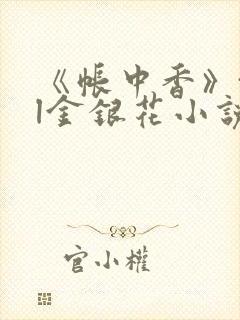 《帳中香》
|金銀花小說
官小權